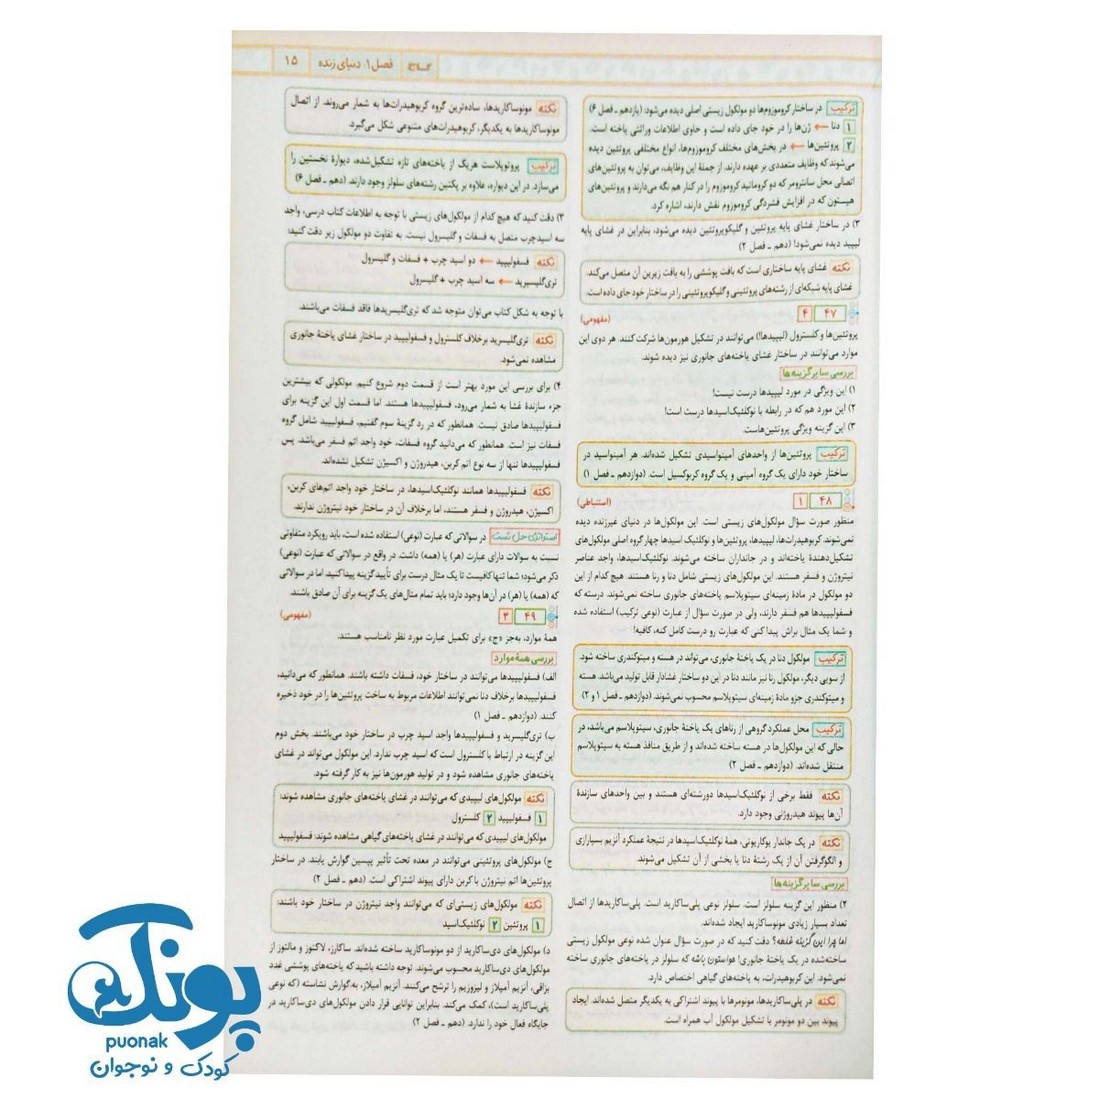 فصل ۱: دنیای زنده ۱۵
ترکیب در ساختار کروموزوم‌ها دو مولکول زیستی اصلی دیده می‌شود: (یازدهم ـ فصل ۶)
1 دنا ← ژن‌ها را در خود جای داده است و حاوی اطلاعات وراثتی یاخته است.
2 پروتئین‌ها ← در بخش‌های مختلف کروموزوم‌ها، انواع مختلفی پروتئین دیده
می‌شوند که وظایف متعددی بر عهده دارند. از جملهٔ این وظایف، می‌توان به پروتئین‌های
اتصالی محل سانترومر که دو کروماتید کروموزوم را در کنار هم نگه می‌دارند و پروتئین‌های
هیستون که در افزایش فشردگی کروموزوم نقش دارند، اشاره کرد.
۳) در ساختار غشای پایه پروتئین و گلیکوپروتئین دیده می‌شود، بنابراین در غشای پایه
لیپید دیده نمی‌شود! (دهم ـ فصل ۲)
نکته غشای پایه ساختاری است که بافت پوششی را به بافت زیرین آن متصل می‌کند.
غشای پایه شبکه‌ای از رشته‌های پروتئینی و گلیکوپروتئینی را در ساختار خود جای داده است.
۴۷ ۴ (مفهومی)
پروتئین‌ها و کلسترول (لیپیدها!) می‌توانند در تشکیل هورمون‌ها شرکت کنند. هر دوی این
موارد می‌توانند در ساختار غشای یاخته‌های جانوری نیز دیده شوند.
بررسی سایر گزینه‌ها
۱) این ویژگی در مورد لیپیدها درست نیست!
۲) این مورد هم که در رابطه با نوکلئیک‌اسیدها درست است!
۳) این گزینه ویژگی پروتئین‌هاست.
ترکیب پروتئین‌ها از واحدهای آمینواسیدی تشکیل شده‌اند. هر آمینواسید در
ساختار خود دارای یک گروه آمینی و یک گروه کربوکسیل است. (دوازدهم ـ فصل ۱)
۴۸ ۱ (استنباطی)
منظور صورت سؤال مولکول‌های زیستی است. این مولکول‌ها در دنیای غیرزنده دیده
نمی‌شوند. کربوهیدرات‌ها، لیپیدها، پروتئین‌ها و نوکلئیک اسیدها چهار گروه اصلی مولکول‌های
تشکیل‌دهندهٔ یاخته‌اند و در جانداران ساخته می‌شوند. نوکلئیک‌اسیدها، واجد عناصر
نیتروژن و فسفر هستند. این مولکول‌های زیستی شامل دنا و رنا هستند. هیچ کدام از این
دو مولکول در مادهٔ زمینه‌ای سیتوپلاسم یاخته‌های جانوری ساخته نمی‌شوند. درسته که
فسفولیپیدها هم فسفر دارند، ولی در صورت سؤال از عبارت (نوعی ترکیب) استفاده شده
و شما یک مثال براش پیدا کنی که عبارت رو درست کامل کنه، کافیه!
ترکیب مولکول دنا در یک یاختهٔ جانوری، می‌تواند در هسته و میتوکندری ساخته شود.
از سویی دیگر، مولکول رنا نیز مانند دنا در این دو ساختار غشادار قابل تولید می‌باشد. هسته
و میتوکندری جزو مادهٔ زمینه‌ای سیتوپلاسم محسوب نمی‌شوند. (دوازدهم ـ فصل ۱ و ۲)
ترکیب محل عملکرد گروهی از رناهای یک یاختهٔ جانوری، سیتوپلاسم می‌باشد، در
حالی که این مولکول‌ها در هسته ساخته شده‌اند و از طریق منافذ هسته به سیتوپلاسم
منتقل شده‌اند. (دوازدهم ـ فصل ۲)
نکته فقط برخی از نوکلئیک‌اسیدها دورشته‌ای هستند و بین واحدهای سازندهٔ
آن‌ها پیوند هیدروژنی وجود دارد.
نکته در یک جاندار یوکاریوتی، همهٔ نوکلئیک‌اسیدها در نتیجهٔ عملکرد آنزیم بسپارازی
و الگوگرفتن آن از یک رشتهٔ دنا یا بخشی از آن تشکیل می‌شوند.
بررسی سایر گزینه‌ها
۲) منظور این گزینه سلولز است. سلولز نوعی پلی‌ساکارید است. پلی‌ساکاریدها از اتصال
تعداد بسیار زیادی مونوساکارید ایجاد شده‌اند.
اما چرا این گزینه غلطه؟ دقت کنید که در صورت سؤال عنوان شده نوعی مولکول زیستی
ساخته‌شده در یک یاختهٔ جانوری! هواستون باشه که سلولز در یاخته‌های جانوری ساخته
نمی‌شود. این کربوهیدرات، به یاخته‌های گیاهی اختصاص دارد.
نکته در پلی‌ساکاریدها، مونومرها با پیوند اشتراکی به یکدیگر متصل شده‌اند. ایجاد
پیوند بین دو مونومر با تشکیل مولکول آب همراه است.
نکته مونوساکاریدها، ساده‌ترین گروه کربوهیدرات‌ها به شمار می‌روند. از اتصال
مونوساکاریدها به یکدیگر، کربوهیدرات‌های متنوعی شکل می‌گیرد.
ترکیب پروتوپلاست هریک از یاخته‌های تازه تشکیل‌شده، دیوارهٔ نخستین را
می‌سازد. در این دیواره، علاوه بر پکتین رشته‌های سلولز وجود دارند. (دهم ـ فصل ۶)
۳) دقت کنید که هیچ کدام از مولکول‌های زیستی با توجه به اطلاعات کتاب درسی، واجد
سه اسیدچرب متصل به فسفات و گلیسرول نیست. به تفاوت دو مولکول زیر دقت کنید:
نکته فسفولیپید ← دو اسید چرب + فسفات و گلیسرول
تری‌گلیسیرید ← سه اسید چرب + گلیسرول
با توجه به شکل کتاب می‌توان متوجه شد که تری‌گلیسریدها فاقد فسفات می‌باشند.
نکته تری‌گلیسرید برخلاف کلسترول و فسفولیپید در ساختار غشای یاختهٔ جانوری
مشاهده نمی‌شود.
۴) برای بررسی این مورد بهتر است از قسمت دوم شروع کنیم. مولکولی که بیشترین
جزء سازندهٔ غشا به شمار می‌رود، فسفولیپیدها هستند. اما قسمت اول این گزینه برای
فسفولیپیدها صادق نیست. همانطور که در رد گزینهٔ سوم گفتیم، فسفولیپید شامل گروه
فسفات نیز است. همانطور که می‌دانید گروه فسفات، خود واجد اتم فسفر می‌باشد. پس
فسفولیپیدها تنها از سه نوع اتم کربن، هیدروژن و اکسیژن تشکیل نشده‌اند.
نکته فسفولیپیدها همانند نوکلئیک‌اسیدها، در ساختار خود واجد اتم‌های کربن،
اکسیژن، هیدروژن و فسفر هستند، اما برخلاف آن در ساختار خود نیتروژن ندارند.
استراتژی حل تست در سوالاتی که عبارت (نوعی) استفاده شده است، باید رویکرد متفاوتی
نسبت به سوالات دارای عبارت (هر) یا (همه) داشت. در واقع در سوالاتی که عبارت (نوعی)
ذکر می‌شود؛ شما تنها کافیست تا یک مثال درست برای تأیید گزینه پیدا کنید. اما در سوالاتی
که (همه) یا (هر) در آن‌ها وجود دارد؛ باید تمام مثال‌های یک گزینه برای آن صادق باشند.
۴۹ ۳ (مفهومی)
همهٔ موارد، به‌جز «ج» برای تکمیل عبارت مورد نظر نامناسب هستند.
بررسی همهٔ موارد
الف) فسفولیپیدها می‌توانند در ساختار خود، فسفات داشته باشند. همانطور که می‌دانید،
فسفولیپیدها برخلاف دنا نمی‌توانند اطلاعات مربوط به ساخت پروتئین‌ها را در خود ذخیره
کنند. (دوازدهم ـ فصل ۱)
ب) تری‌گلیسرید و فسفولیپیدها واجد اسید چرب در ساختار خود می‌باشند. بخش دوم
این گزینه در ارتباط با کلسترول است که اسید چرب ندارد. این مولکول می‌تواند در غشای
یاخته‌های جانوری مشاهده شود و در تولید هورمون‌ها نیز به کار گرفته شود.
نکته مولکول‌های لیپیدی که می‌توانند در غشای یاخته‌های جانوری مشاهده شوند:
1 فسفولیپید 2 کلسترول
مولکول‌های لیپیدی که می‌توانند در غشای یاخته‌های گیاهی مشاهده شوند: فسفولیپید
ج) مولکول‌های پروتئینی می‌توانند در معده تحت تأثیر پپسین گوارش یابند. در ساختار
پروتئین‌ها اتم نیتروژن با کربن دارای پیوند اشتراکی است. (دهم ـ فصل ۲)
نکته مولکول‌های زیستی‌ای که می‌توانند واجد نیتروژن در ساختار خود باشند:
1 پروتئین 2 نوکلئیک‌اسید
د) مولکول‌های دی‌ساکارید از دو مونوساکارید ساخته شده‌اند. ساکارز، لاکتوز و مالتوز از
مولکول‌های دی‌ساکارید محسوب می‌شوند. توجه داشته باشید که یاخته‌های پوششی غدد
بزاقی، آنزیم آمیلاز و لیزوزیم را ترشح می‌کنند. آنزیم آمیلاز، به‌گوارش نشاسته (که نوعی
پلی‌ساکارید است)، کمک می‌کند. بنابراین توانایی قرار دادن مولکول‌های دی‌ساکارید در
جایگاه فعال خود را ندارد. (دهم ـ فصل ۲)
پونک
puonak
کودک و نوجوان